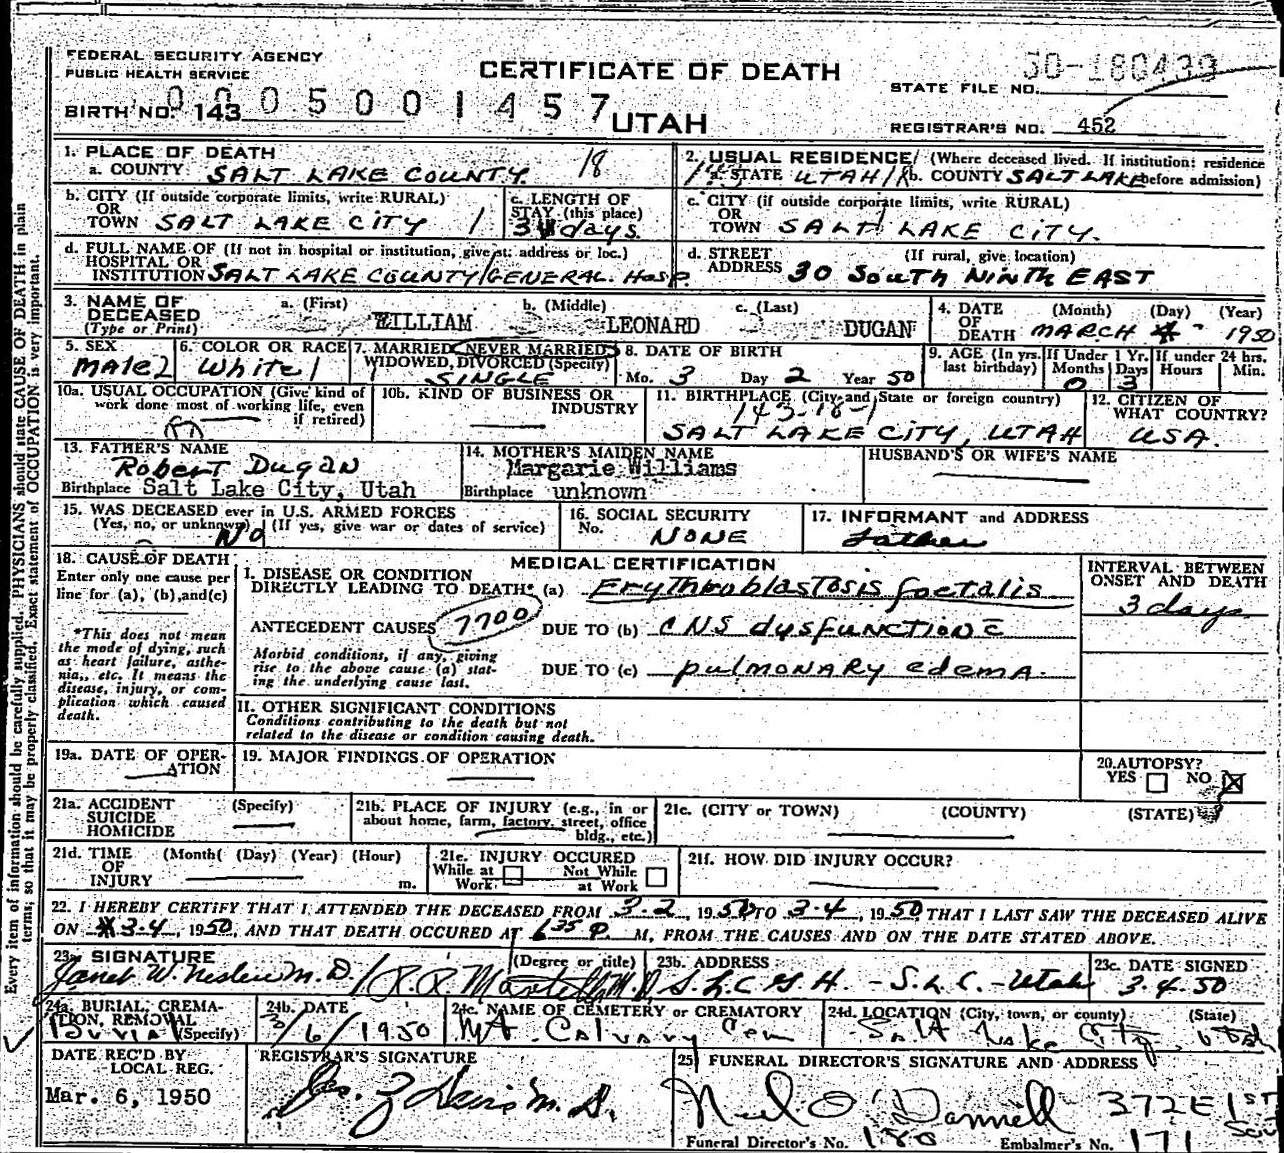 FEDERAL SECURITY AGENCY
PUBLIC HEALTH SERVICE
CERTIFICATE OF DEATH
50-180439
STATE FILE NO.
BIRTH NO. 143 0005001457
UTAH
REGISTRAR'S NO. 452
1. PLACE OF DEATH
a. COUNTY. SALT LAKE COUNTY. 18
2. USUAL RESIDENCE (Where deceased lived. If institution: residence before admission)
a. STATE UTAH b. COUNTY SALT LAKE
b. CITY (If outside corporate limits, write RURAL)
OR
TOWN SALT LAKE CITY 1
c. LENGTH OF
STAY (this place)
3 days.
c. CITY (if outside corporate limits, write RURAL)
OR
TOWN SALT LAKE CITY.
d. FULL NAME OF (If not in hospital or institution, give st. address or loc.)
HOSPITAL OR
INSTITUTION SALT LAKE COUNTY GENERAL. Hosp.
d. STREET (If rural, give location)
ADDRESS 30 SOUTH NINTH EAST
3. NAME OF
DECEASED
(Type or Print)
a. (First) b. (Middle) c. (Last)
WILLIAM LEONARD DUGAN
4. DATE (Month) (Day) (Year)
OF
DEATH MARCH 4 1950
5. SEX
MALE 2
6. COLOR OR RACE
White 1
7. MARRIED, NEVER MARRIED,
WIDOWED, DIVORCED (Specify)
1 SINGLE
8. DATE OF BIRTH
Mo. 3 Day 2 Year 50
9. AGE (In yrs. last birthday)
If Under 1 Yr.
Months Days
0 3
If under 24 hrs.
Hours Min.
10a. USUAL OCCUPATION (Give kind of
work done most of working life, even
if retired)
10b. KIND OF BUSINESS OR
INDUSTRY
11. BIRTHPLACE (City and State or foreign country)
143-18-1
SALT LAKE CITY, UTAH
12. CITIZEN OF
WHAT COUNTRY?
USA.
13. FATHER'S NAME
Robert Dugan
Birthplace Salt Lake City, Utah
14. MOTHER'S MAIDEN NAME
Margarie Williams
Birthplace unknown
HUSBAND'S OR WIFE'S NAME
15. WAS DECEASED ever in U.S. ARMED FORCES
(Yes, no, or unknown) (If yes, give war or dates of service)
No
16. SOCIAL SECURITY
No. NONE
17. INFORMANT and ADDRESS
Father
18. CAUSE OF DEATH
Enter only one cause per
line for (a), (b), and (c)
*This does not mean
the mode of dying, such
as heart failure, asthe-
nia, etc. It means the
disease, injury, or com-
plication which caused
death.
MEDICAL CERTIFICATION
I. DISEASE OR CONDITION
DIRECTLY LEADING TO DEATH* (a) Erythroblastosis foetalis
ANTECEDENT CAUSES 7700 DUE TO (b) CNS dysfunction c̄
Morbid conditions, if any, giving
rise to the above cause (a) stat-
ing the underlying cause last.
DUE TO (c) pulmonary edema.
INTERVAL BETWEEN
ONSET AND DEATH
3 days
II. OTHER SIGNIFICANT CONDITIONS
Conditions contributing to the death but not
related to the disease or condition causing death.
19a. DATE OF OPER-
ATION
19. MAJOR FINDINGS OF OPERATION
20. AUTOPSY?
YES ☐ NO ☒
21a. ACCIDENT (Specify)
SUICIDE
HOMICIDE
21b. PLACE OF INJURY (e.g., in or
about home, farm, factory, street, office
bldg., etc.)
21c. (CITY or TOWN) (COUNTY) (STATE)
21d. TIME (Month) (Day) (Year) (Hour)
OF
INJURY m.
21e. INJURY OCCURED
While at Work ☐ Not While at Work ☐
21f. HOW DID INJURY OCCUR?
22. I HEREBY CERTIFY THAT I ATTENDED THE DECEASED FROM 3-2, 1950 TO 3-4, 1950 THAT I LAST SAW THE DECEASED ALIVE
ON 3-4, 1950, AND THAT DEATH OCCURED AT 6 35 P. M, FROM THE CAUSES AND ON THE DATE STATED ABOVE.
23a. SIGNATURE (Degree or title)
Janet W. M.D. / R.R. M.D.
23b. ADDRESS
S.L.C.G.H. - S.L.C. - Utah
23c. DATE SIGNED
3.4.50
24a. BURIAL, CREMA-
TION, REMOVAL
(Specify)
Burial
24b. DATE
3/6/1950
24c. NAME OF CEMETERY or CREMATORY
Mt. Calvary Cem
24d. LOCATION (City, town, or county) (State)
Salt Lake City, Utah
DATE REC'D BY
LOCAL REG.
Mar. 6, 1950
REGISTRAR'S SIGNATURE
M.D.
25. FUNERAL DIRECTOR'S SIGNATURE AND ADDRESS
Neil O'Donnell 372 E 1st South
Funeral Director's No. 180 Embalmer's No. 171
Every item of information should be carefully supplied. PHYSICIANS should state CAUSE OF DEATH in plain
terms, so that it may be properly classified. Exact statement of OCCUPATION is very important.